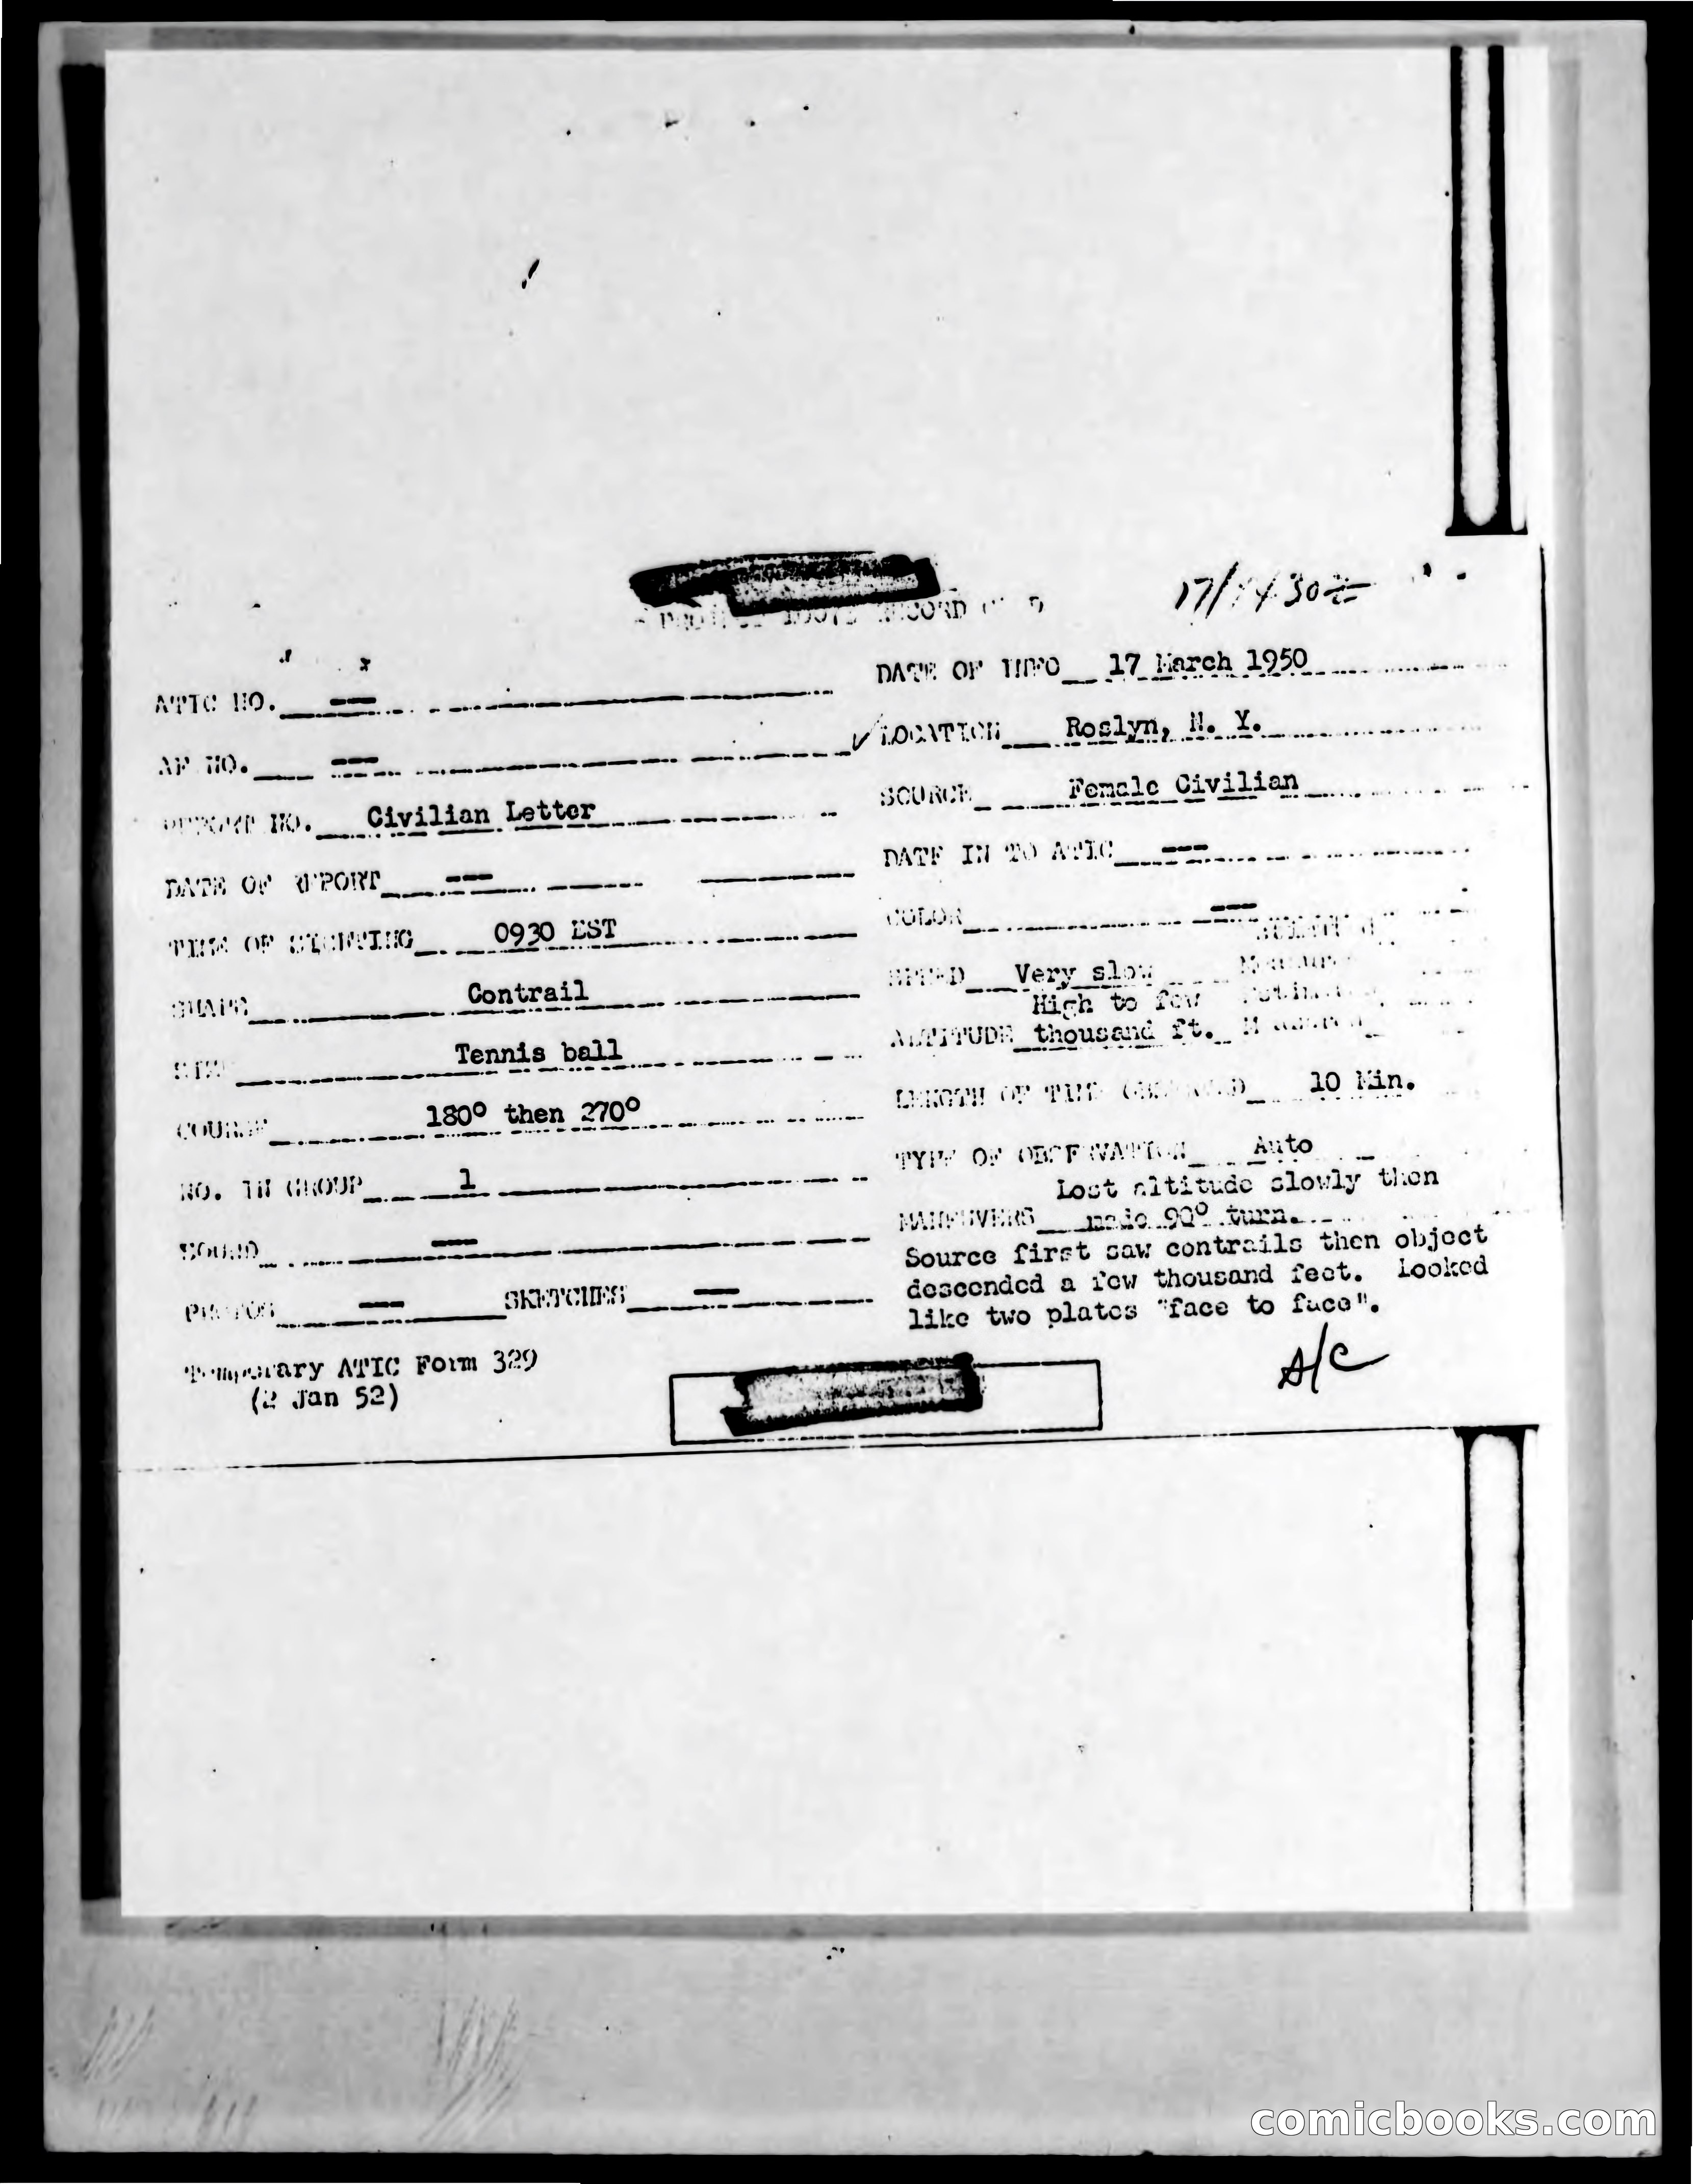 17/1430Z
RECORD
DATE OF INFO 17 March 1950
ATIC NO. --
LOCATION Roslyn, N. Y.
AF NO. ---
SOURCE Female Civilian
REPORT NO. Civilian Letter
DATE IN TO ATIC ---
DATE OF REPORT ---
COLOR ---
TIME OF SIGHTING 0930 EST
SPEED Very slow
SHAPE Contrail
High to few
ALTITUDE thousand ft.
SIZE Tennis ball
LENGTH OF TIME OBSERVED 10 Min.
COURSE 180° then 270°
TYPE OF OBSERVATION Auto
NO. IN GROUP 1
Lost altitude slowly then
MANEUVERS made 90° turn.
SOUND ---
Source first saw contrails then object
descended a few thousand feet. Looked
like two plates "face to face".
PHOTOS --- SKETCHES ---
Temporary ATIC Form 329
(2 Jan 52)
A/C
comicbooks.com